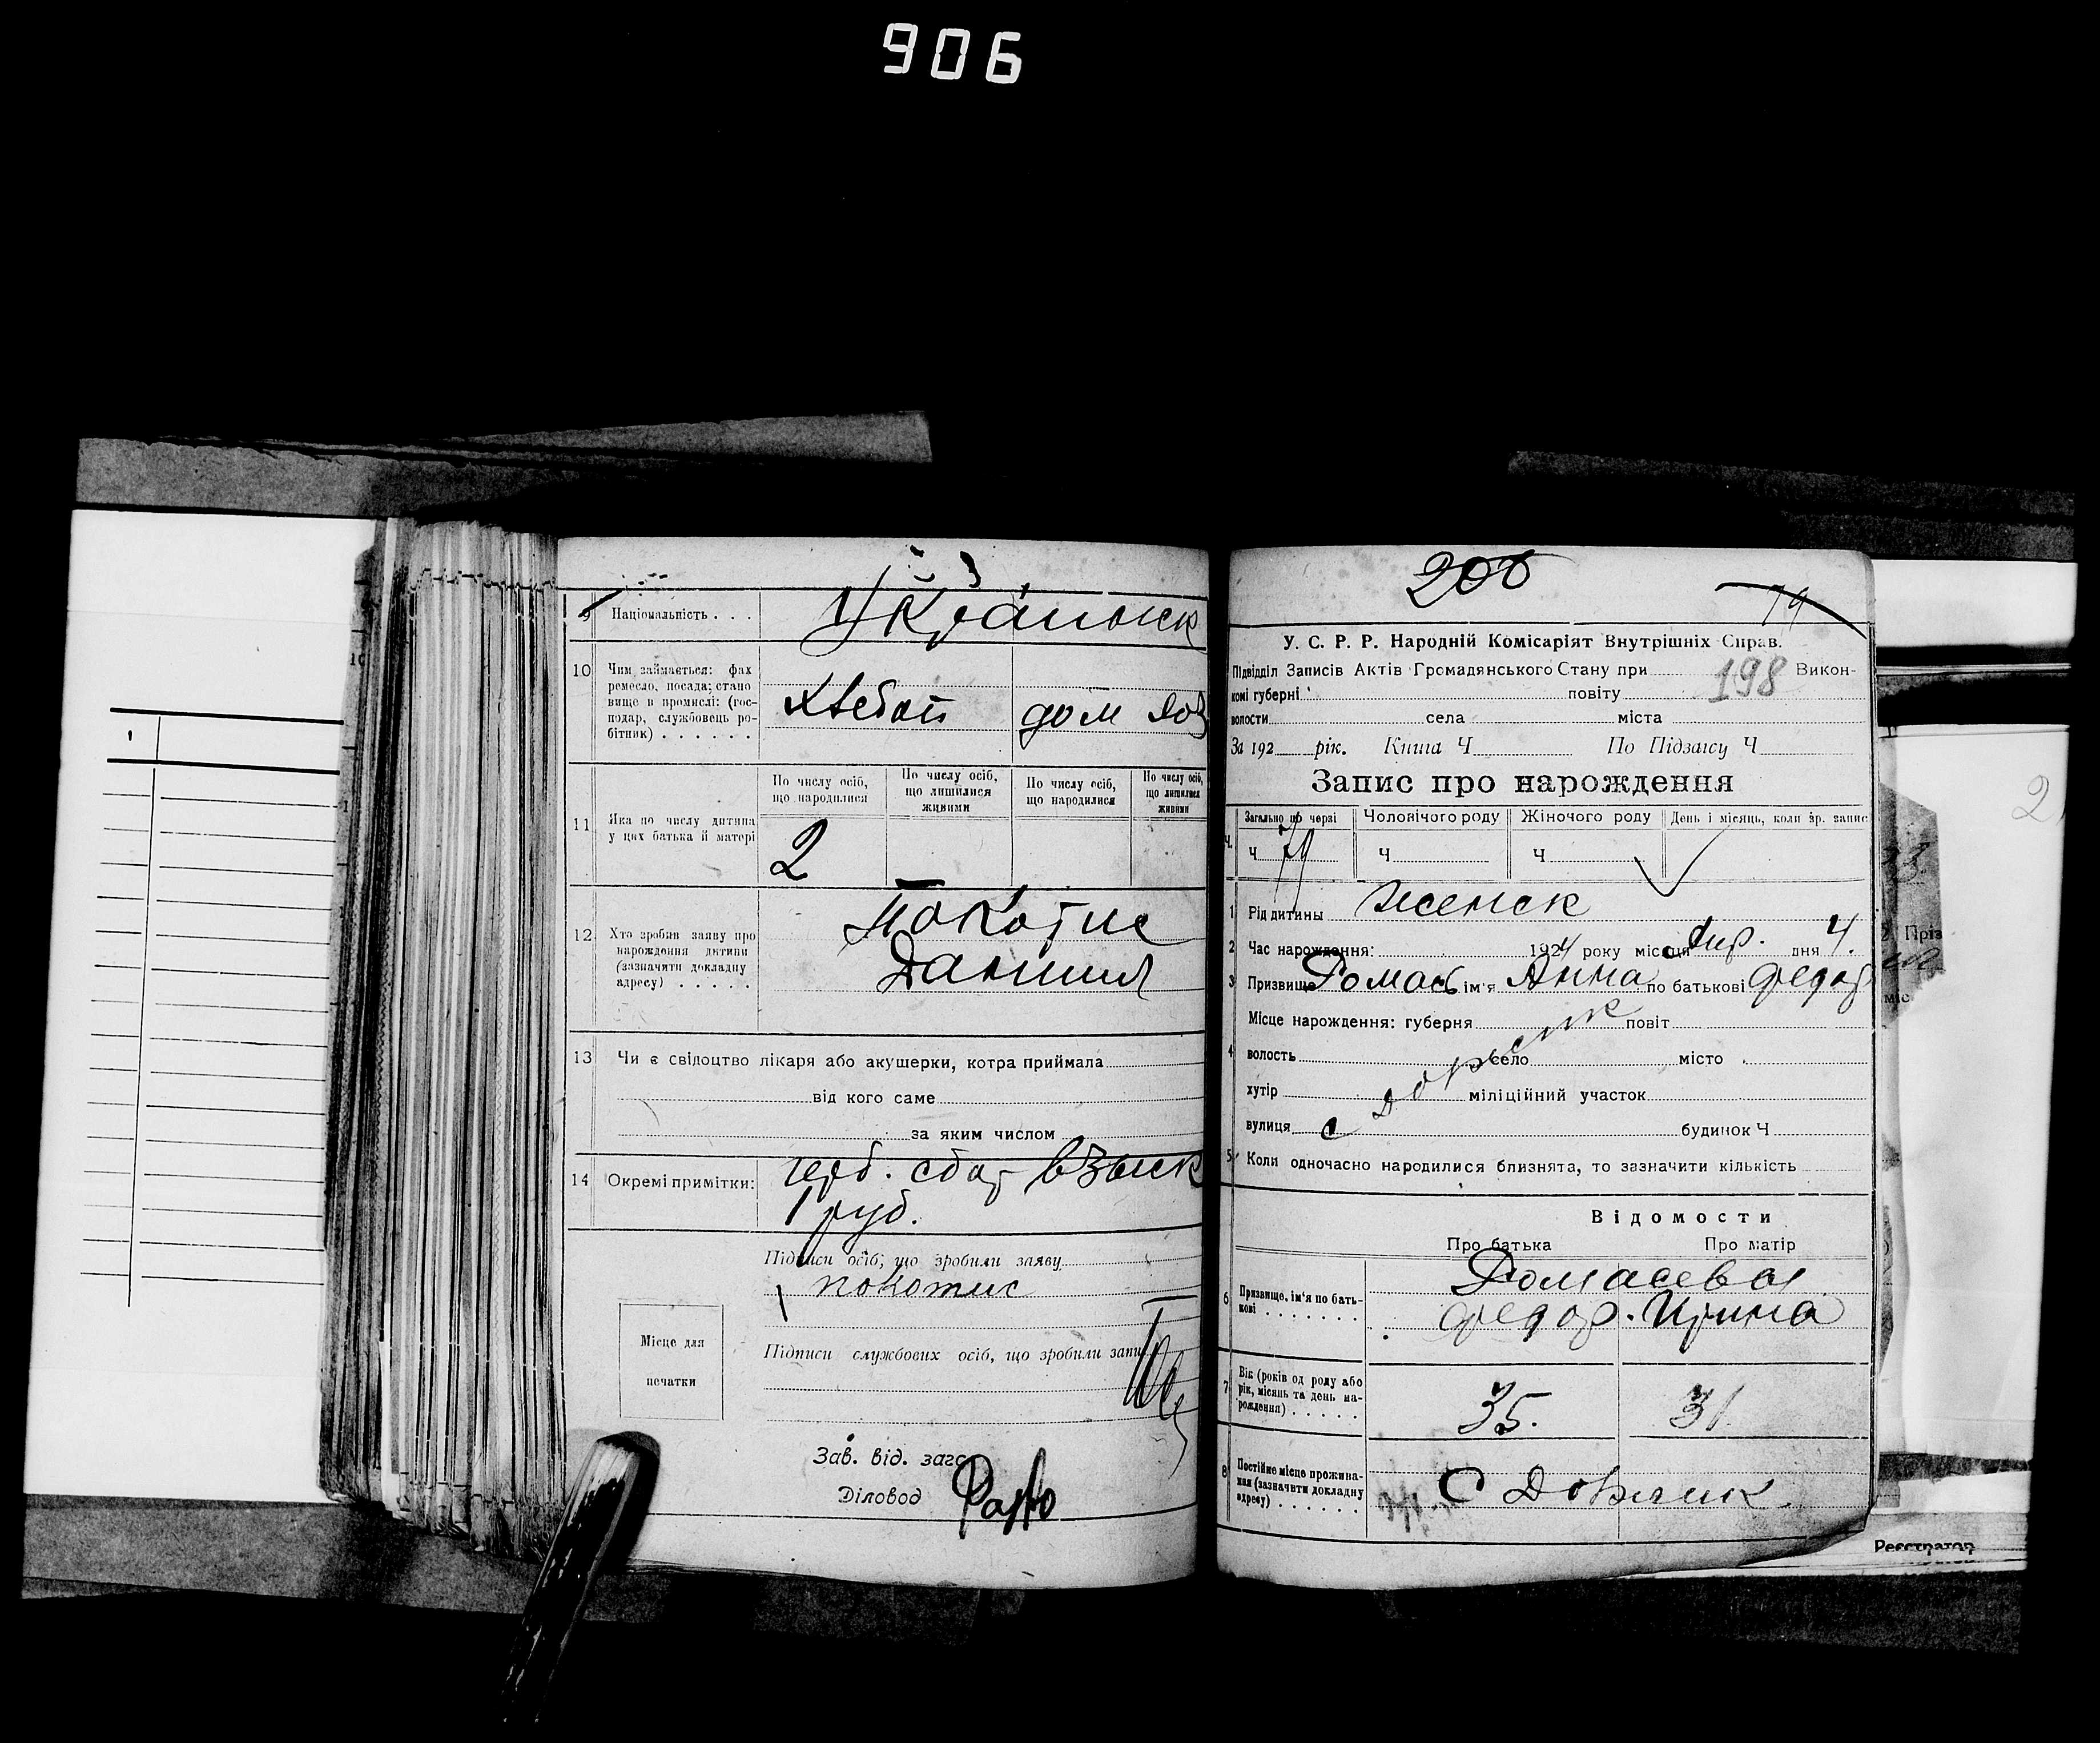 906
9 Національність . . .
Украинск
10 Чим займається: фах
ремесло, посада; стано
вище в промислі: (гос-
подар, службовець ро-
бітник) . . . . . .
Хлебоп дом хоз
По числу осіб, що народилися
По числу осіб, що лишилися живими
По числу осіб, що народилися
По числу осіб, що лишилися живими
11 Яка по числу дитина
у цих батька й матері
2
12 Хто зробив заяву про
нарождення дитини
(зазначити докладну
адресу) . . . . .
Покотис
Даниил
13 Чи є свідоцтво лікаря або акушерки, котра приймала
від кого саме
за яким числом
14 Окремі примітки:
герб. сбор взыск
1 руб.
Підписи осіб, що зробили заяву
покотис
Місце для
печатки
Підписи службових осіб, що зробили запис
Зав. від. загс
Діловод
200
79
У. С. Р. Р. Народній Комісаріят Внутрішніх Справ.
Підвідділ Записів Актів Громадянського Стану при 198 Викон-
комі губерні повіту
волости села міста
За 192 рік. Книга Ч По Підзапсу Ч
Запис про нарождення
Загально по черзі
Чоловічого роду
Жіночого роду
День і місяць, коли зр. запис
Ч. Ч 79 Ч Ч
1 Рід дитины женск
2 Час нарождення: 1924 року місяця Апр. дня 4.
3 Призвище Ромась ім'я Анна по батькові Федор
Місце нарождення: губерня повіт
4 волость село місто
хутір міліційний участок
вулиця с будинок Ч
5 Коли одночасно народилися близнята, то зазначити кількість
Відомости
Про батька Про матір
6 Призвище, ім'я по бать-
кові . . . . . .
Ромасевы
Федор. Ирина
7 Вік (років од роду або
рік, місяць та день на-
рождення) . . . . .
35. 31
8 Постійне місце прожива-
ння (зазначити докладну
адресу) . . . . . .
С
Реєстратор